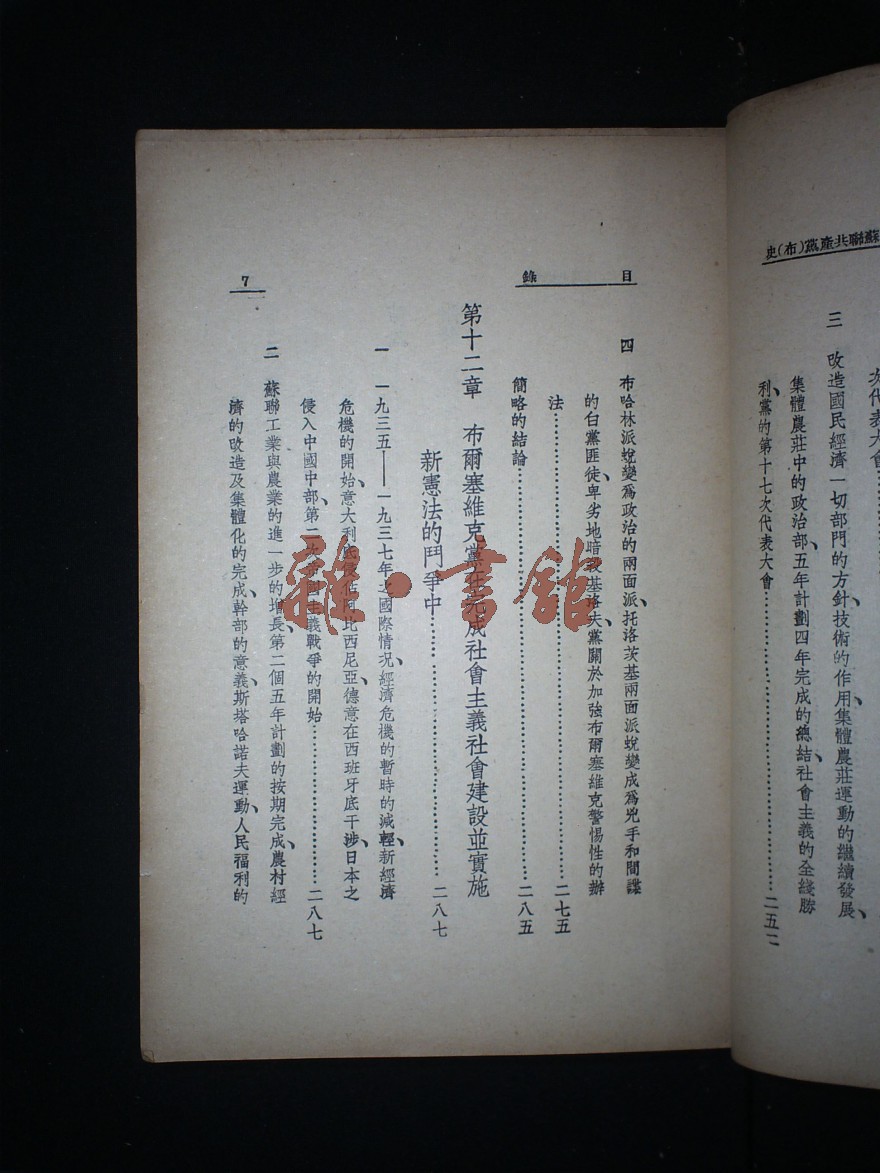 蘇聯共產黨(布)史
次代表大會
三　改造國民經濟一切部門的方針、技術的作用、集體農莊運動的繼續發展、
集體農莊中的政治部、五年計劃四年完成的總結、社會主義的全綫勝
利、黨的第十七次代表大會……………………二五二
目錄
四　布哈林派蛻變爲政治的兩面派、托洛茨基兩面派蛻變成爲兇手和間諜
的白黨匪徒、卑劣地暗殺基洛夫、黨關於加強布爾塞維克警惕性的辦
法……………………二七五
簡略的結論……………………二八五
第十二章　布爾塞維克黨在完成社會主義社會建設並實施
新憲法的鬥爭中……………………二八七
一　一九三五——一九三七年之國際情況、經濟危機的暫時的減輕、新經濟
危機的開始、意大利底侵佔阿比西尼亞、德意在西班牙底干涉、日本之
侵入中國中部、第二次帝國主義戰爭的開始……………………二八七
二　蘇聯工業與農業的進一步的增長、第二個五年計劃的按期完成、農村經
濟的改造及集體化的完成、幹部的意義、斯塔哈諾夫運動、人民福利的
7
雜·書館